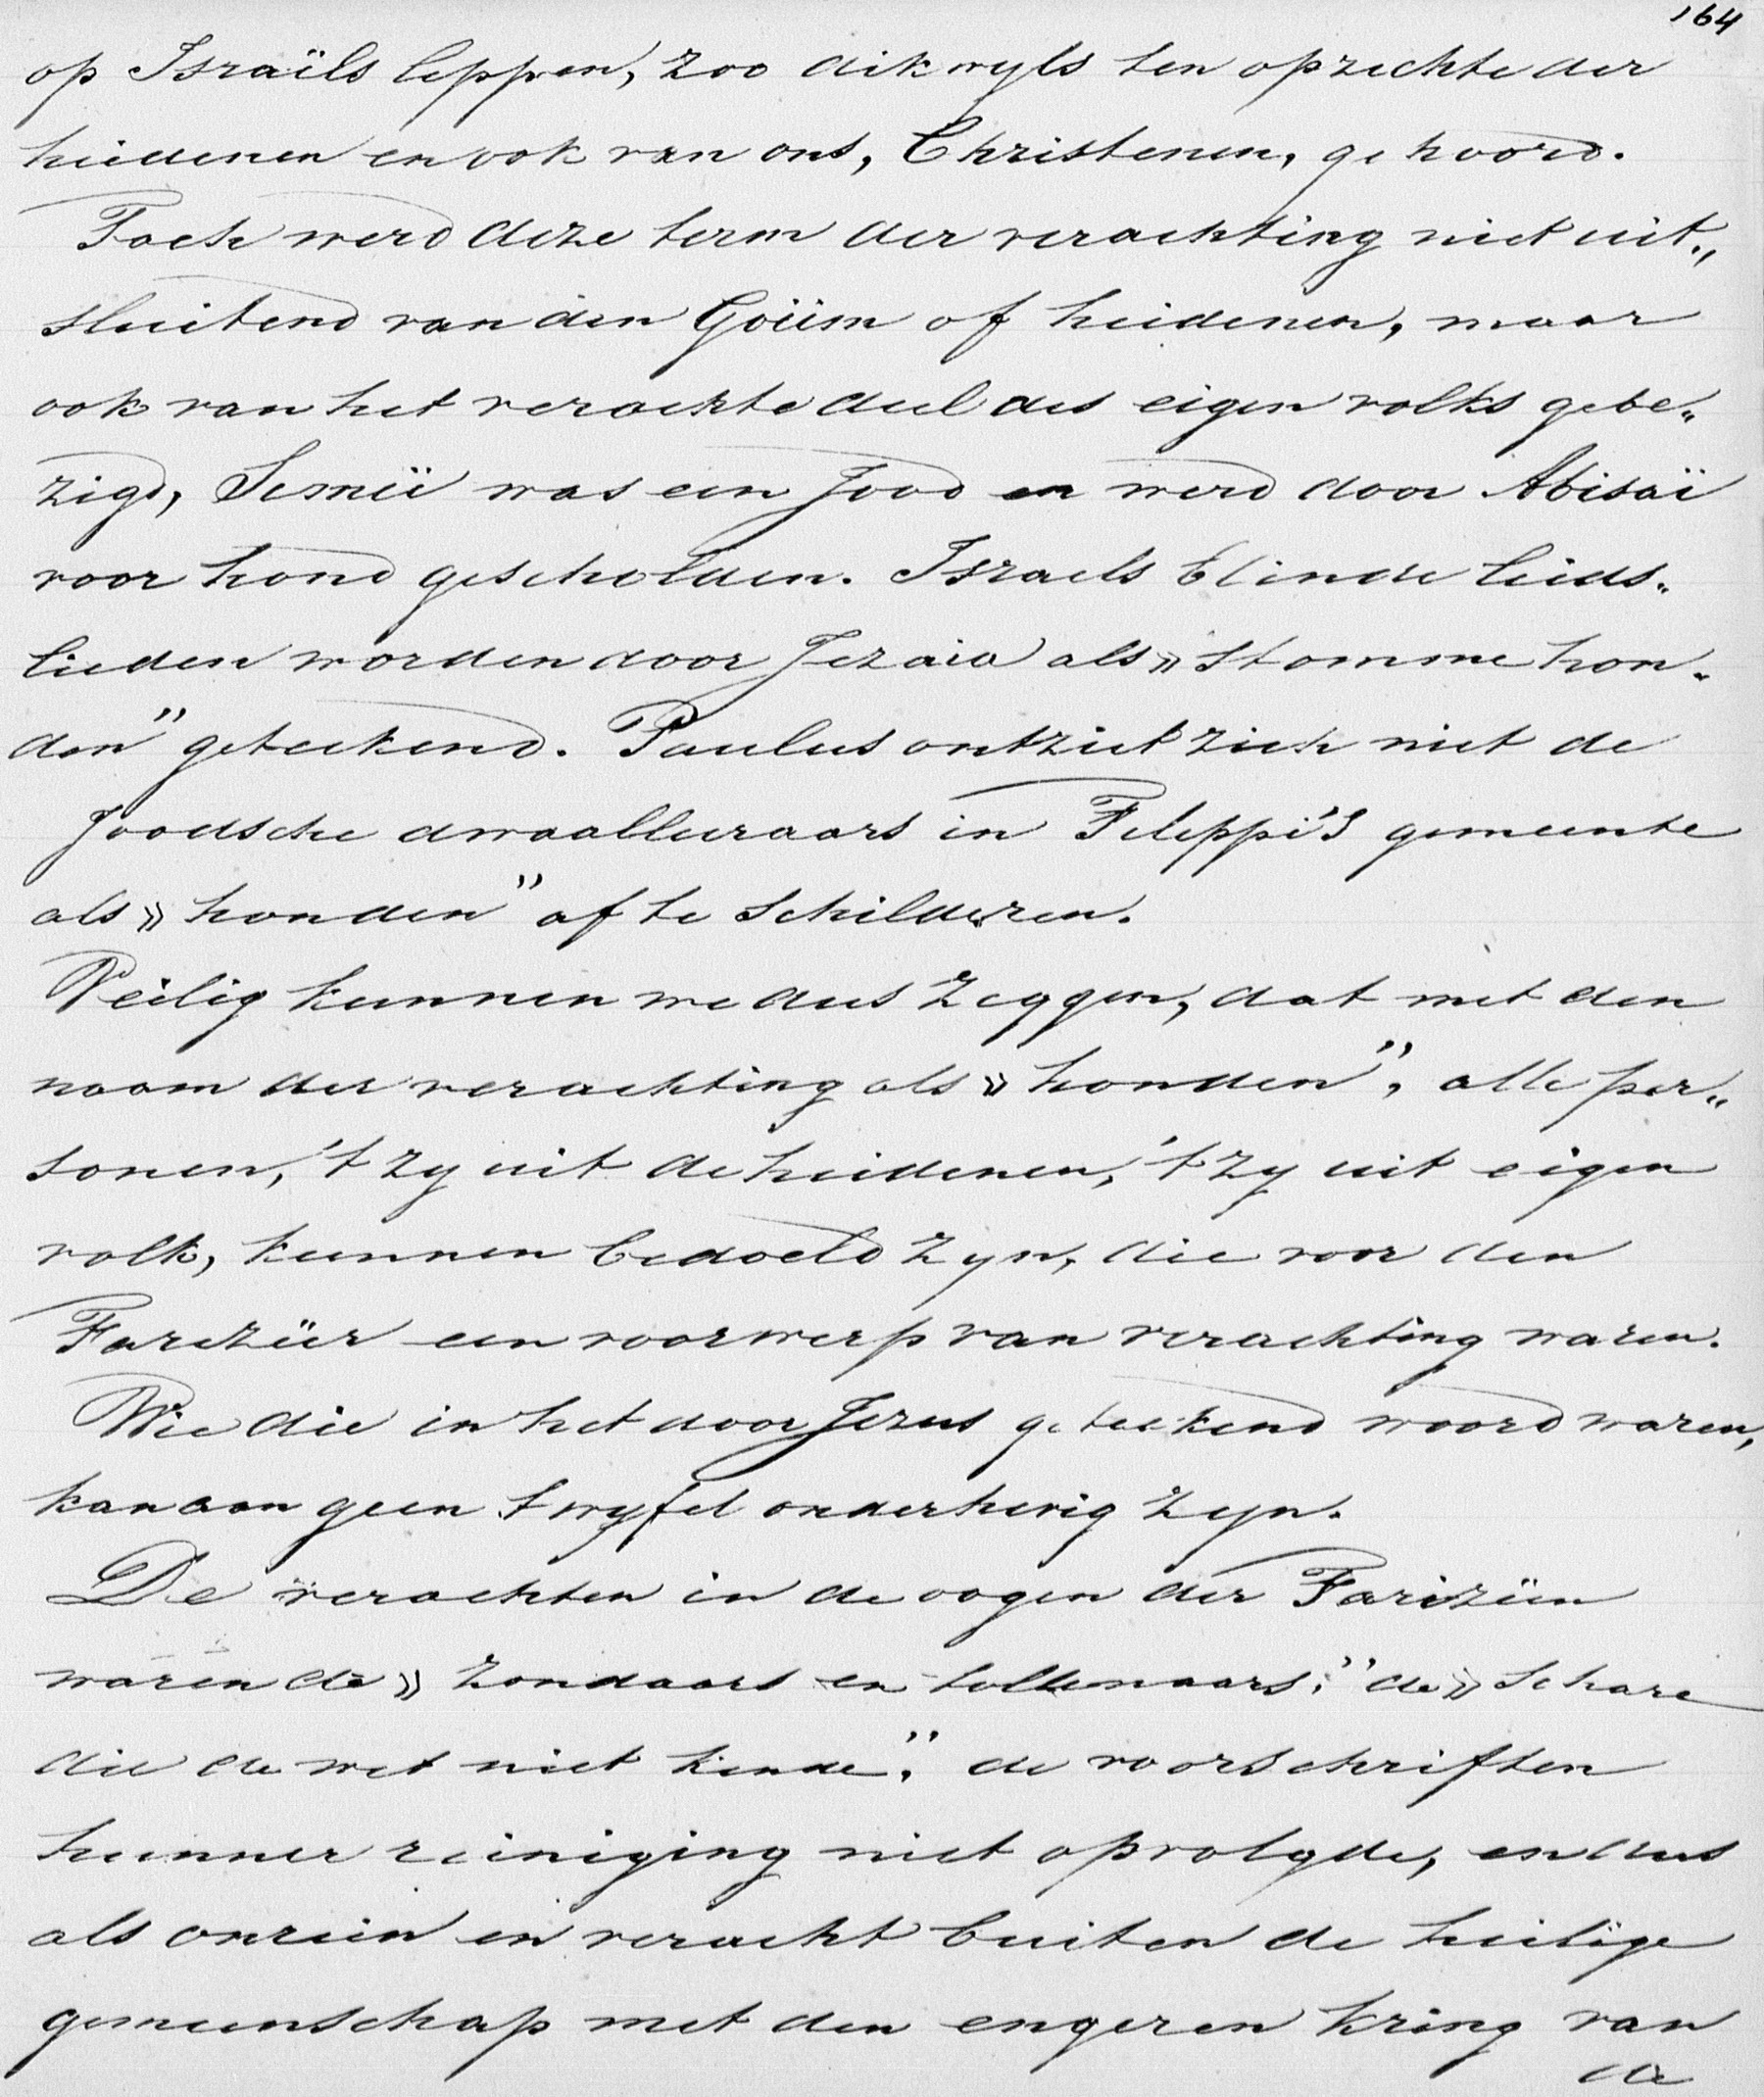 164
op Israëls lippen, zoo dikwyls ten opzichte der
heidenen en ook van ons, Christenen, gehoord.
Toch werd deze term der verachting niet uit„
sluitend van den Goïim of heidenen, maar
ook van het verachte deel des eigen volks gebe„
zigd, Simeï was een Jood en werd door Abisaï
voor hond gescholden. Israels blinde leids„
lieden worden door Jezaia als „stomme hon„
den” geteekend. Paulus ontziet zich niet de
Joodsche dwaalleeraars in Filippi's gemeente
als „honden” af te schilderen.
Veilig kunnen we dus zeggen, dat met den
naam der verachting als „honden”, alle per„
sonen, 't zy uit de heidenen, 't zy uit eigen
volk, kunnen bedoeld zyn, die voor den
Farizëer een voorwerp van verachting waren.
Wie die in het door Jezus geteekend woord waren,
kan aan geen twyfel onderhevig zyn.
De verachten in de oogen der Farizëen
waren de „zondaars en tollenaars,” de „schare
die de wet niet kende,” de voorschriften
hunner reiniging niet opvolgde, en dus
als onrein en veracht buiten de heilige
gemeenschap met den engeren kring van
de